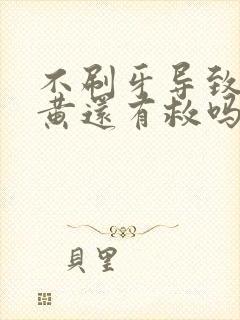 不刷牙导致
黄還有救吗
貝里